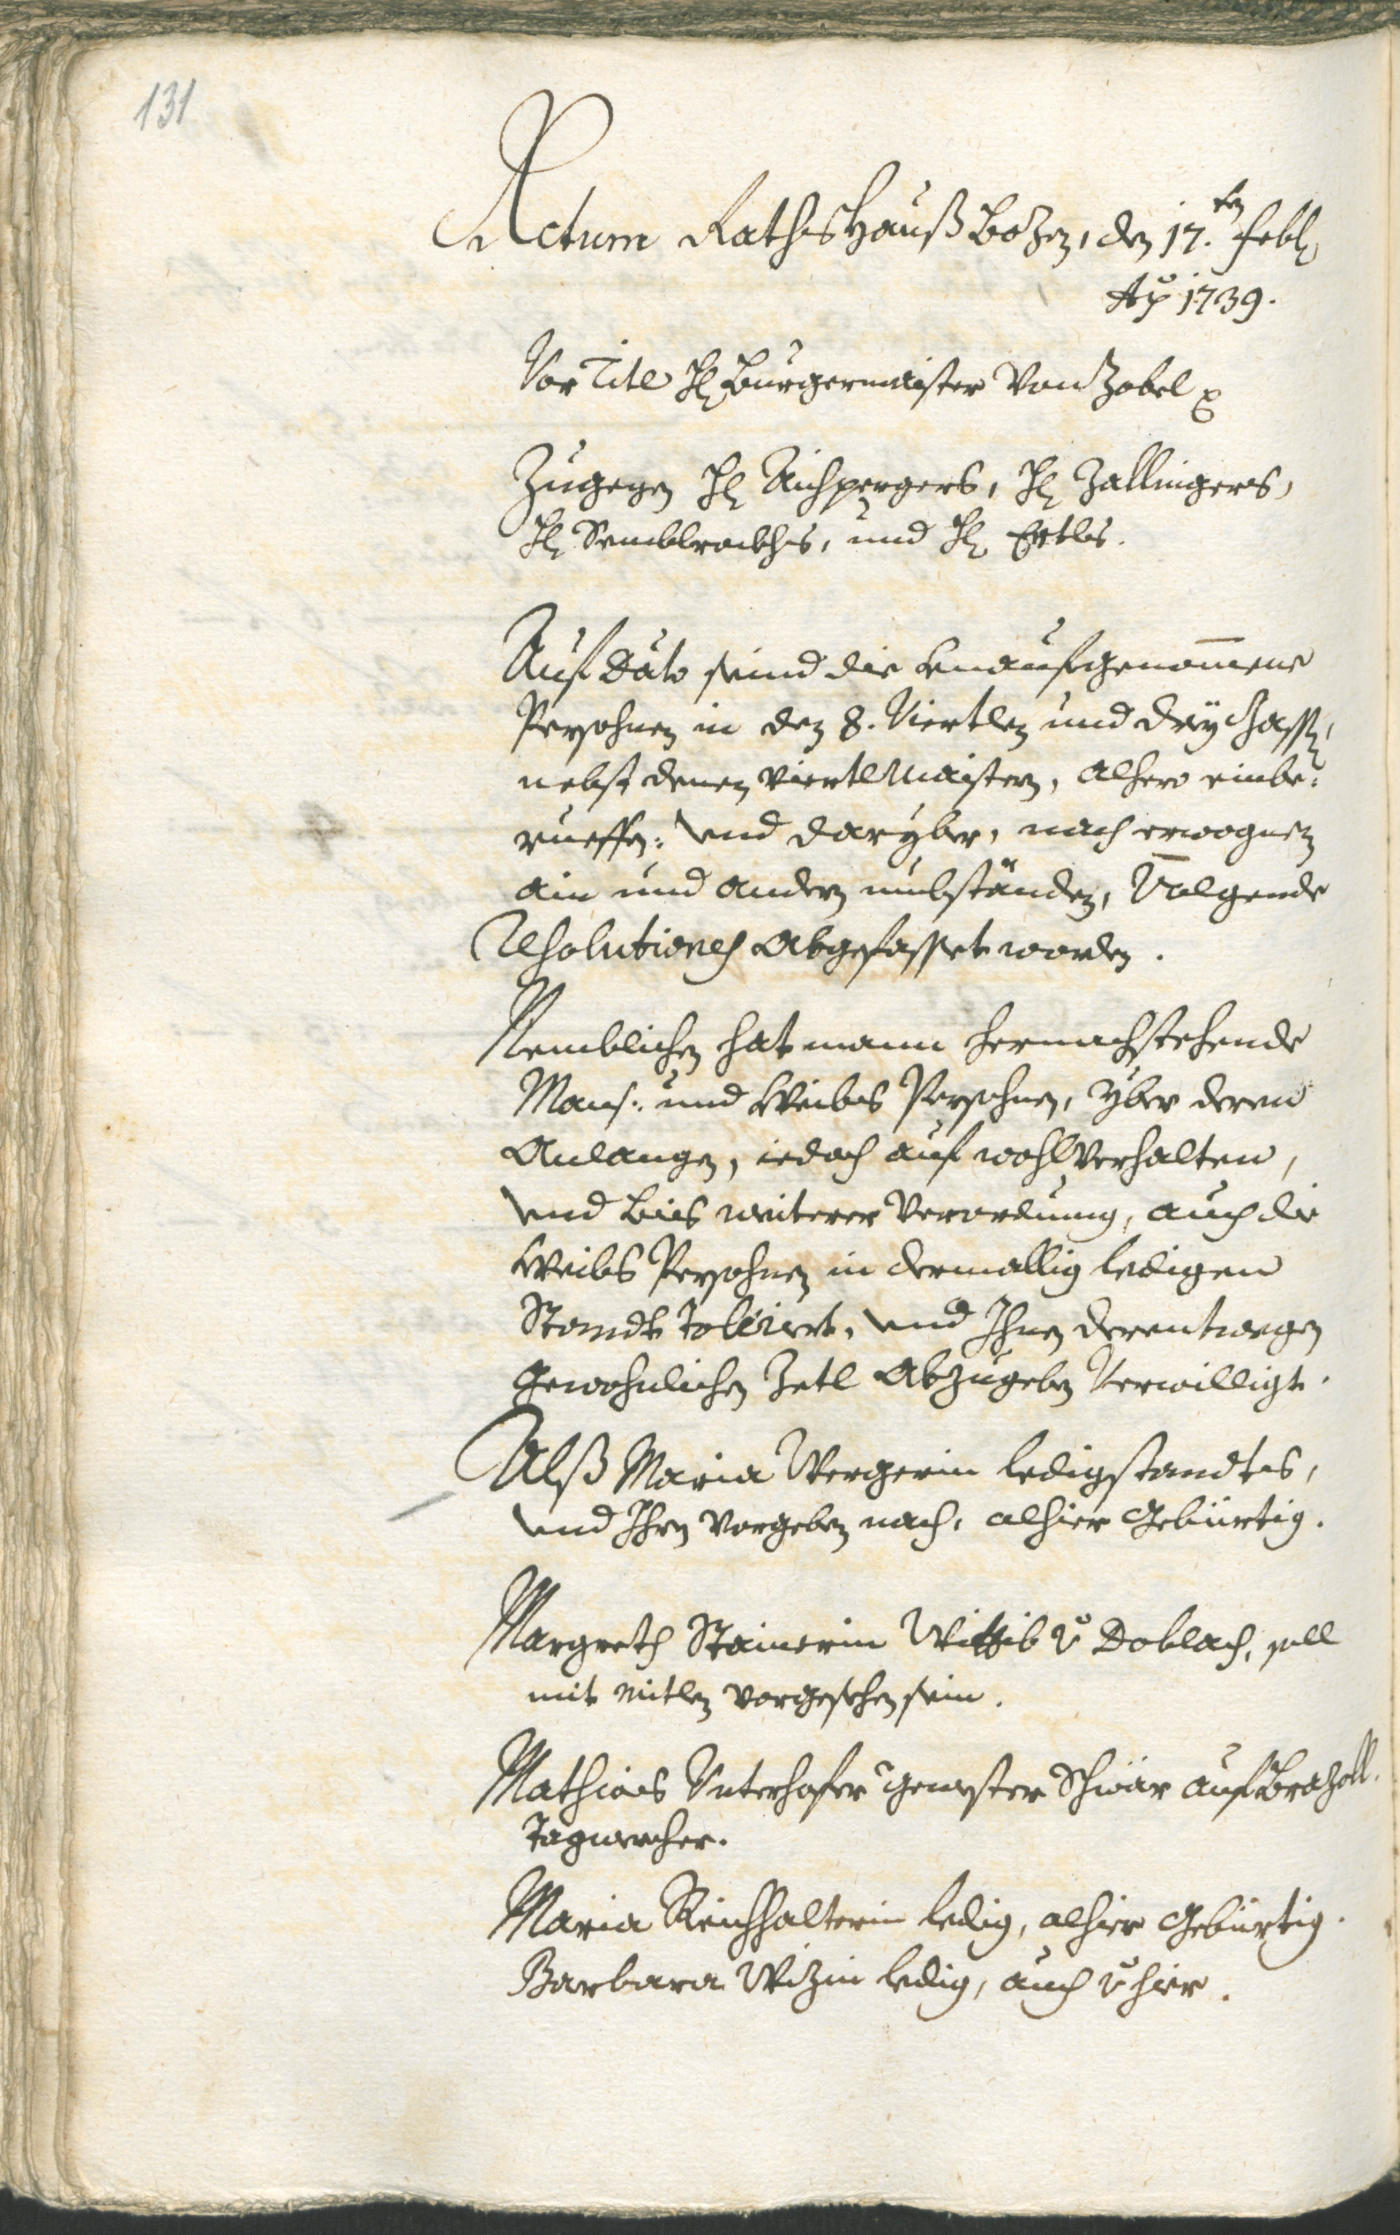 131
Actum Rathshauß Bozen, den 17.ten Febr.
Ao 1739.
Vor Titl H. Burgermaister Von Zobel
Zugegen H. Aichpergers, H. Zallingers,
H. Semblrockhs, und H. Ertls.
Auf Dato seind die hinaufgenomene
Persohnen in den 8. Viertlen und drey
nebst denen viertlmaistern, alhero einbe:
rueffen: und daryber, nach erwognen
ain und andern umbständen, Volgende
Resolutiones Abgefasset worden.
Nemblichen hat mann hernachstehende
Manß: und Weibs Persohnen, yber deren
Anlangen, iedoch auf wohlverhalten,
und bis weiterer Verordnung, auch die
Weibs Persohnen in dermallig ledigen
Standt Toleriert, und Ihnen derentwegen
gewohnlichen Zetl Abzugeben Verwilligt.
Alß Maria Vergerin ledigstandts,
und Ihrn vorgeben nach, alhier Gebürtig.
Margreth Stainerin Wittib v Doblach, soll
mit mitlen vorgesehen sein.
Mathias Unterhofer gewester auf Brazoll.
Tagwercher.
Maria Reichhalterin ledig, alhier Gebürtig.
Barbara Wizin ledig, auch v hier.